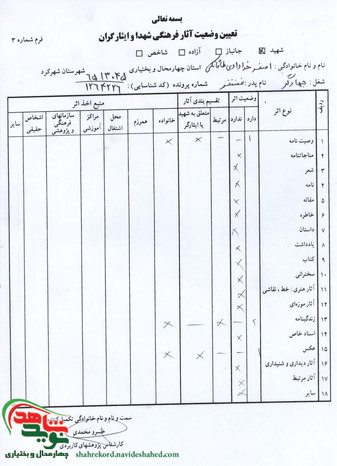 بسمه تعالی
تعیین وضعیت آثار فرهنگی شهدا و ایثارگران
فرم شماره ۳
شهید ☑ جانباز آزاده شاخص
نام و نام خانوادگی: اصغر استان چهارمحال و بختیاری شهرستان شهرکرد
شغل: نام پدر: شماره پرونده (کد شناسایی):
ردیف نوع اثر وضعیت اثر تقسیم بندی آثار منبع اخذ اثر
دارد ندارد مرتبط متعلق به شهید یا ایثارگر خانواده همرزم محل اشتغال مراکز آموزشی سازمانهای فرهنگی و پژوهشی اشخاص حقیقی سایر
۱ وصیت نامه ۱ - - × ×
۲ مناجاتنامه ×
۳ شعر ×
۴ نامه ×
۵ مقاله ×
۶ خاطره ×
۷ داستان ×
۸ یادداشت ×
۹ کتاب ×
۱۰ سخنرانی ×
۱۱ آثار هنری: خط، نقاشی ×
۱۲ آثار موزه‌ای ×
۱۳ زندگینامه ۲ - × - ×
۱۴ اسناد خاص ×
۱۵ عکس × ×
۱۶ آثار دیداری و شنیداری ×
۱۷ آثار مرتبط ×
۱۸ سایر ×
سمت و نام و نام خانوادگی تکمیل کننده
خسرو محمدی
کارشناس پژوهشهای کاربردی
نوید شاهد
چهارمحال و بختیاری
shahrekord.navideshahed.com